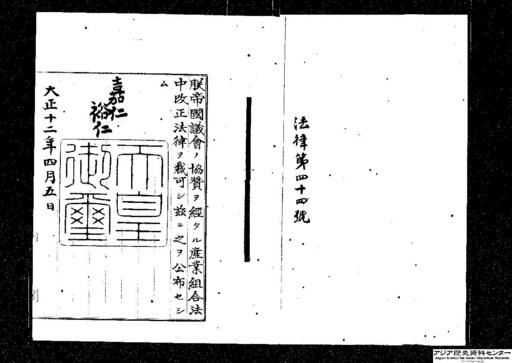 法律第四十四號
朕帝國議會ノ協贊ヲ經タル產業組合法
中改正法律ヲ裁可シ茲ニ之ヲ公布セシ
ム
嘉仁
裕仁
天皇
御璽
大正十二年四月五日
アジア歴史資料センター
Japan Center for Asian Historical Records